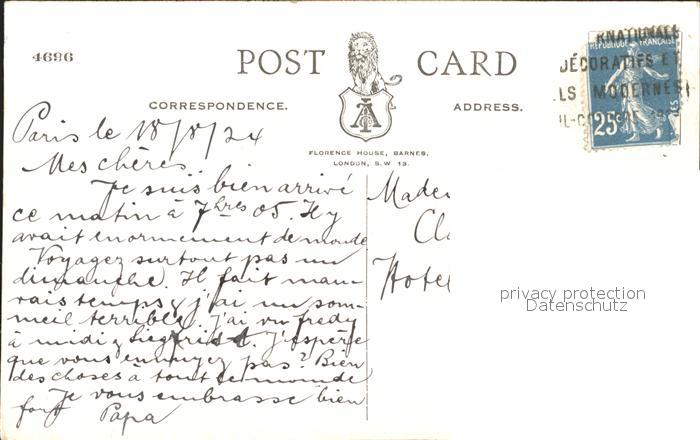 4696
POST CARD
CORRESPONDENCE.
ADDRESS.
FLORENCE HOUSE, BARNES,
LONDON, S.W 13.
RNATIONALE
DÉCORATIFS ET
LS MODERNES
RÉPUBLIQUE FRANÇAISE
25c
Paris le 18/8/24
Mes chères
Je suis bien arrivé
ce matin à 7hres 05. Il y
avait enormement de monde
Voyagez surtout pas un
dimanche. Il fait mau-
vais temps & j'ai un som-
meil terrible. J'ai vu Fredy
à midi & Siegfried. J'espère
que vous ennuyez pas? Bien
des choses à tout le monde
Je vous embrasse bien
fort Papa
Madem
Cl
Hotel
privacy protection
Datenschutz